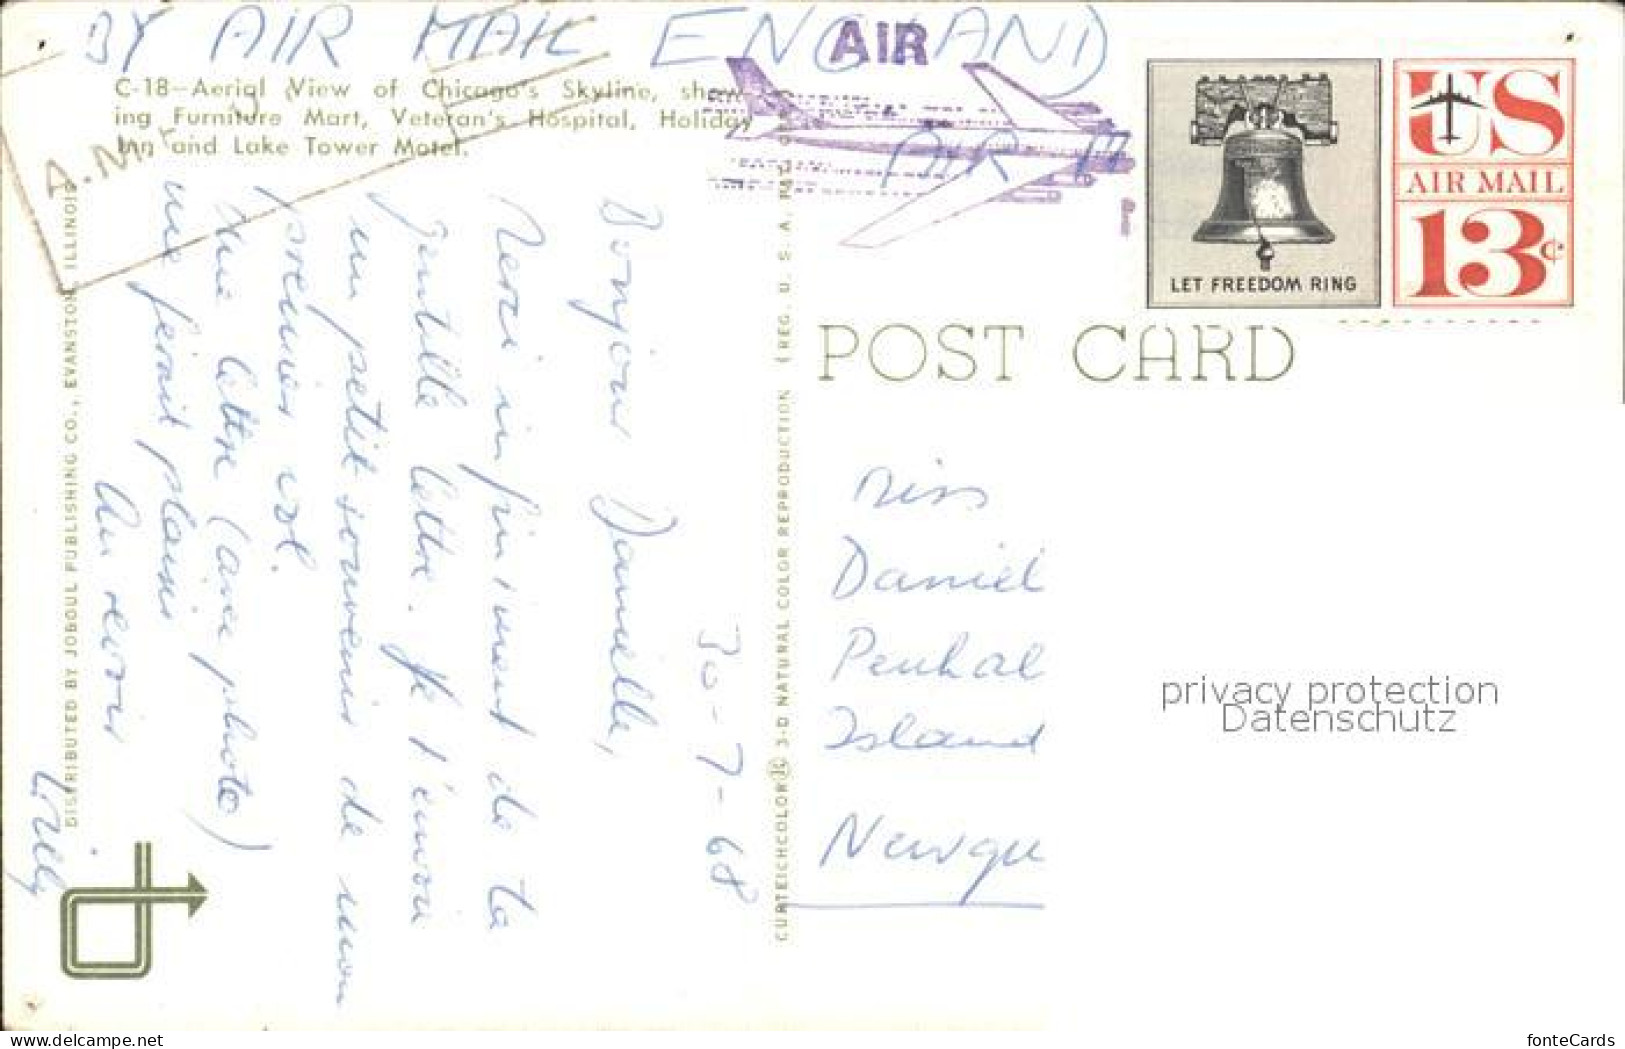 BY AIR MAIL ENGLAND
AIR
C-18—Aerial View of Chicago's Skyline, show-
ing Furniture Mart, Veteran's Hospital, Holiday
Inn and Lake Tower Motel.
30-7-68
Bonjour Danielle,
Merci infiniment de ta
gentille lettre. Je t'envoi
un petit souvenir de mon
premier vol.
une lettre (avec photo)
me ferait plaisir
Au revoir
Willy
DISTRIBUTED BY JOBOUL PUBLISHING CO., EVANSTON, ILLINOIS
CURTEICHCOLOR 3-D NATURAL COLOR REPRODUCTION (REG. U. S. A.
LET FREEDOM RING
US
AIR MAIL
13¢
POST CARD
Miss
Daniel
Penhal
Island
Newqu
privacy protection
Datenschutz
www.delcampe.net
fonteCards